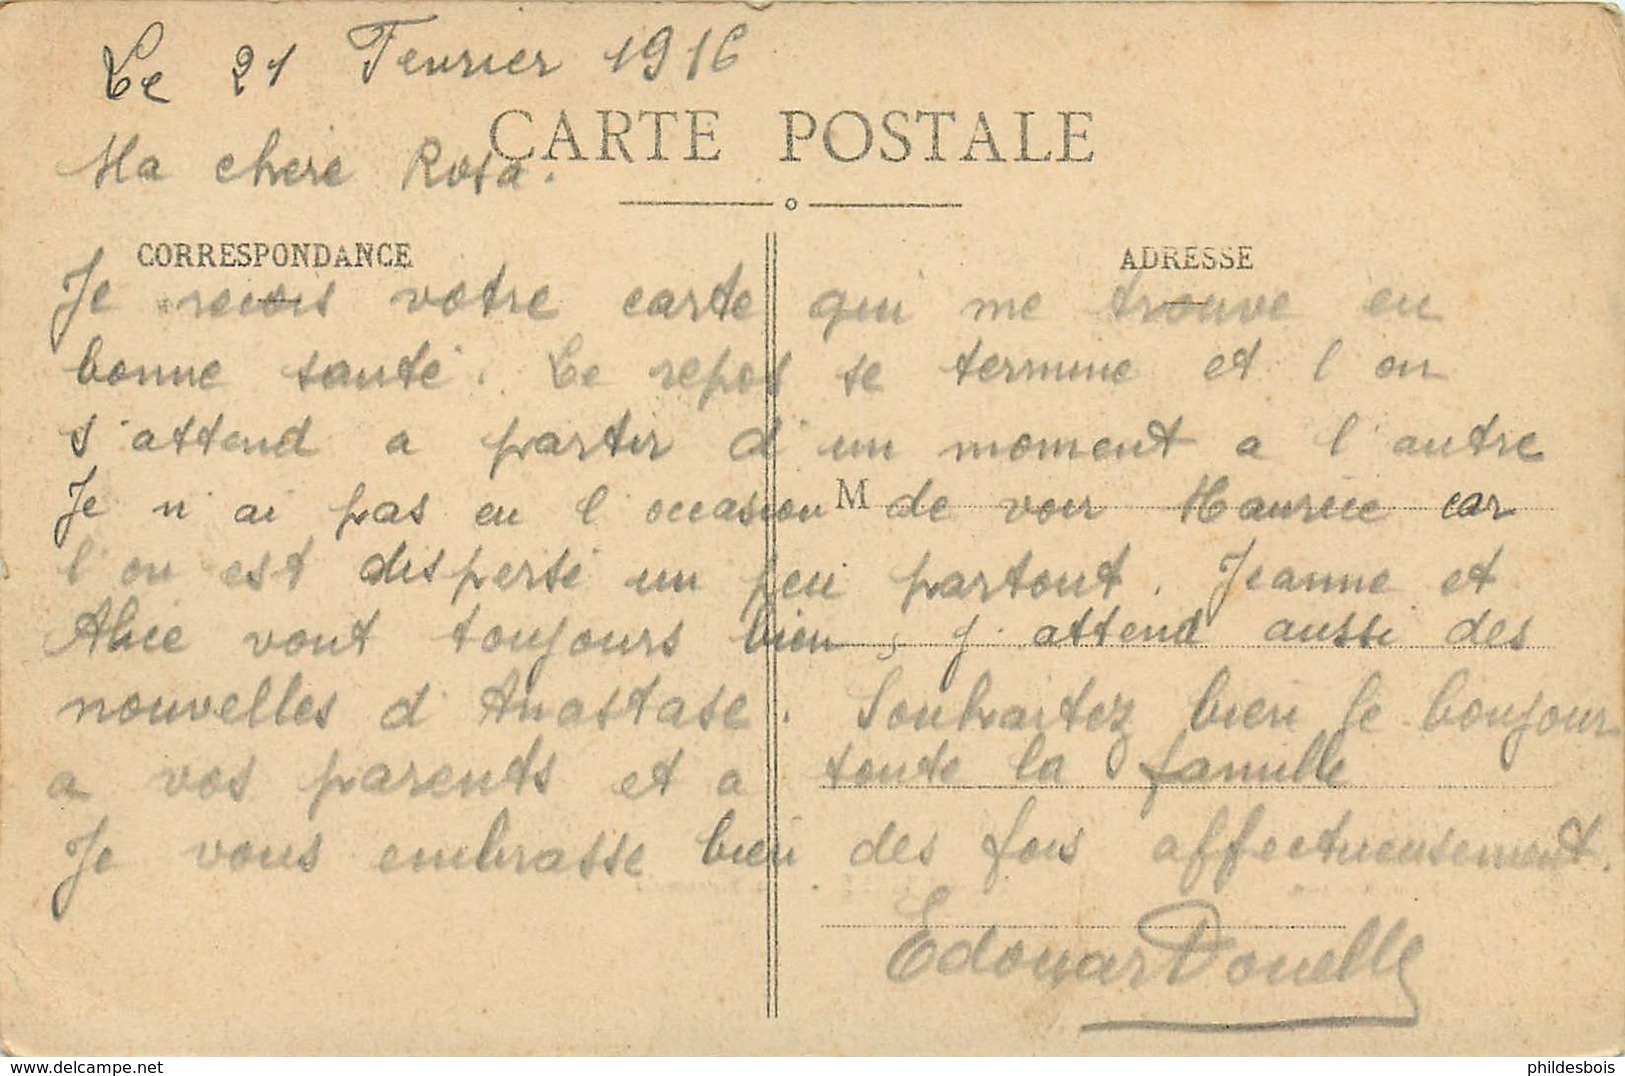 Le 21 Fevrier 1916
CARTE POSTALE
Ma chere Rosa.
CORRESPONDANCE
ADRESSE
Je recois votre carte qui me trouve en
bonne santé. Le repos se termine et l on
s'attend a partir d'un moment a l'autre
Je n'ai pas eu l occasion M de voir Maurice car
l'on est dispersé un peu partout. Jeanne et
Alice vont toujours bien, j'attend aussi des
nouvelles d'Anastase. Souhaitez bien le bonjour
a vos parents et a toute la famille
Je vous embrasse bien des fois affectueusement.
Edouard Douelle
delcampe.net
phildesbois